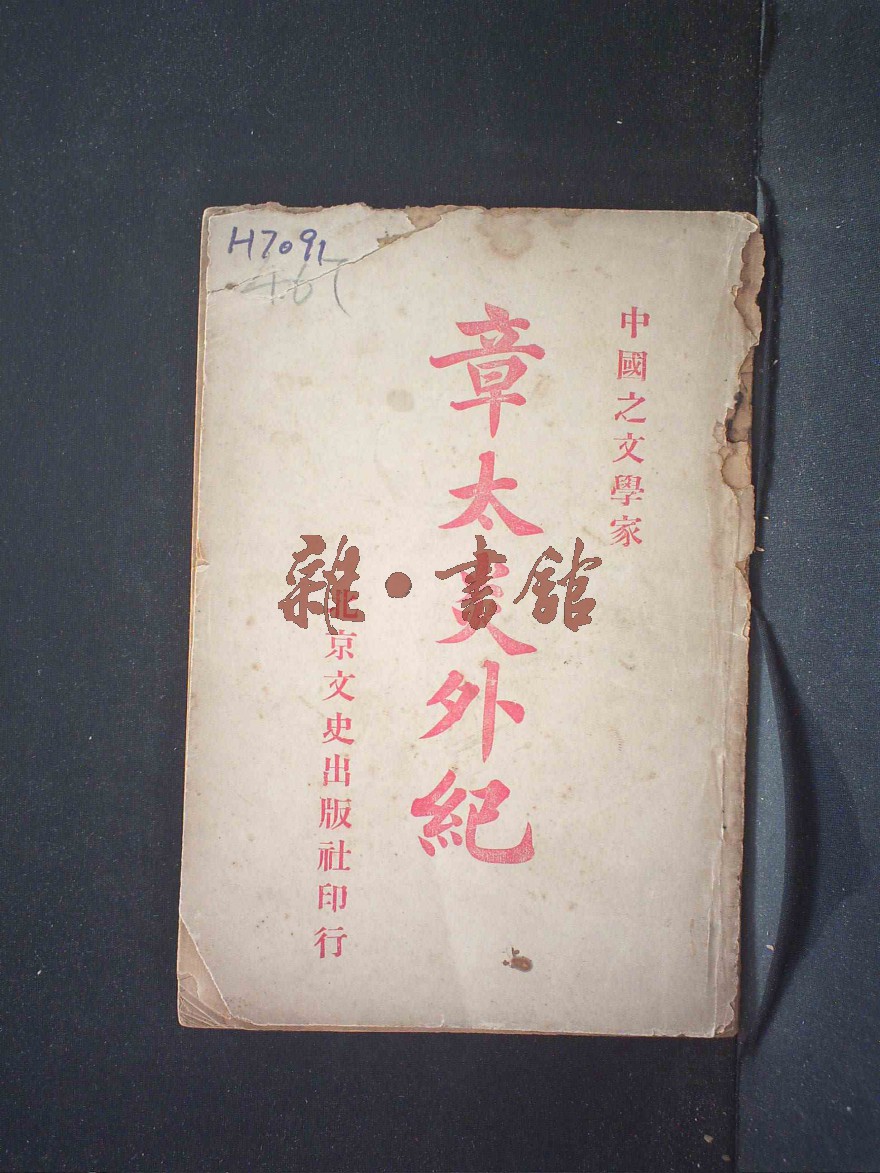 H7091
467
中國之文學家
章太炎外紀
北京文史出版社印行
雜·書館